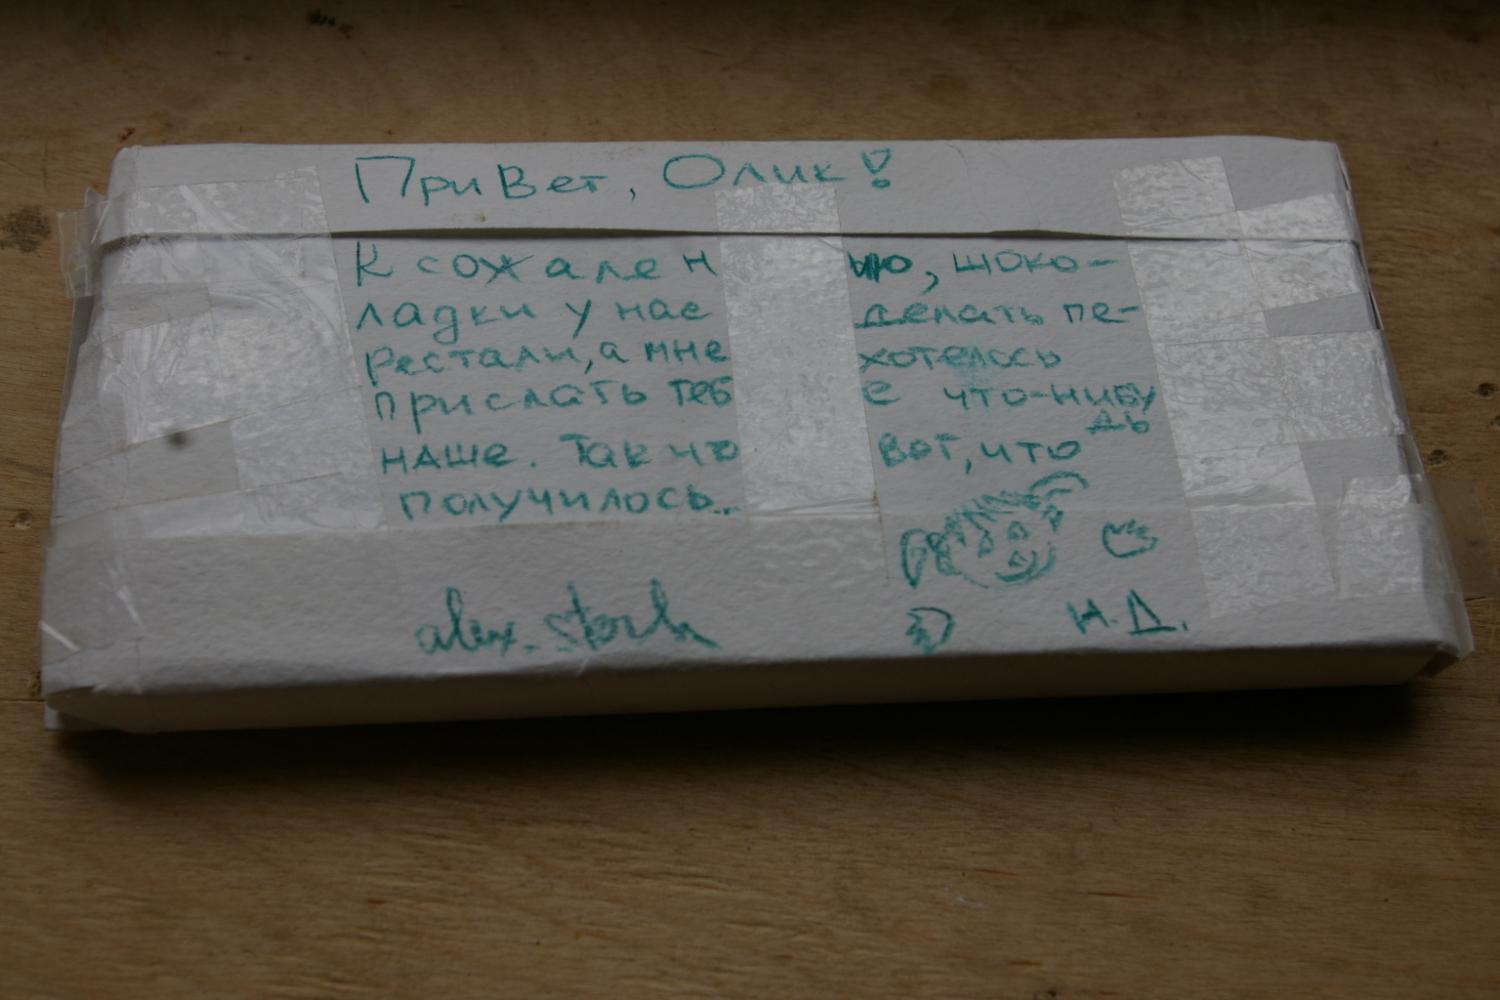 Привет, Олик!
К сожален ию, шоко-
ладки у нас делать пе-
рестали, а мне хотелось
прислать теб е что-нибу
дь
наше. Так что вот, что
получилось...
alex. stork
Н.Д.